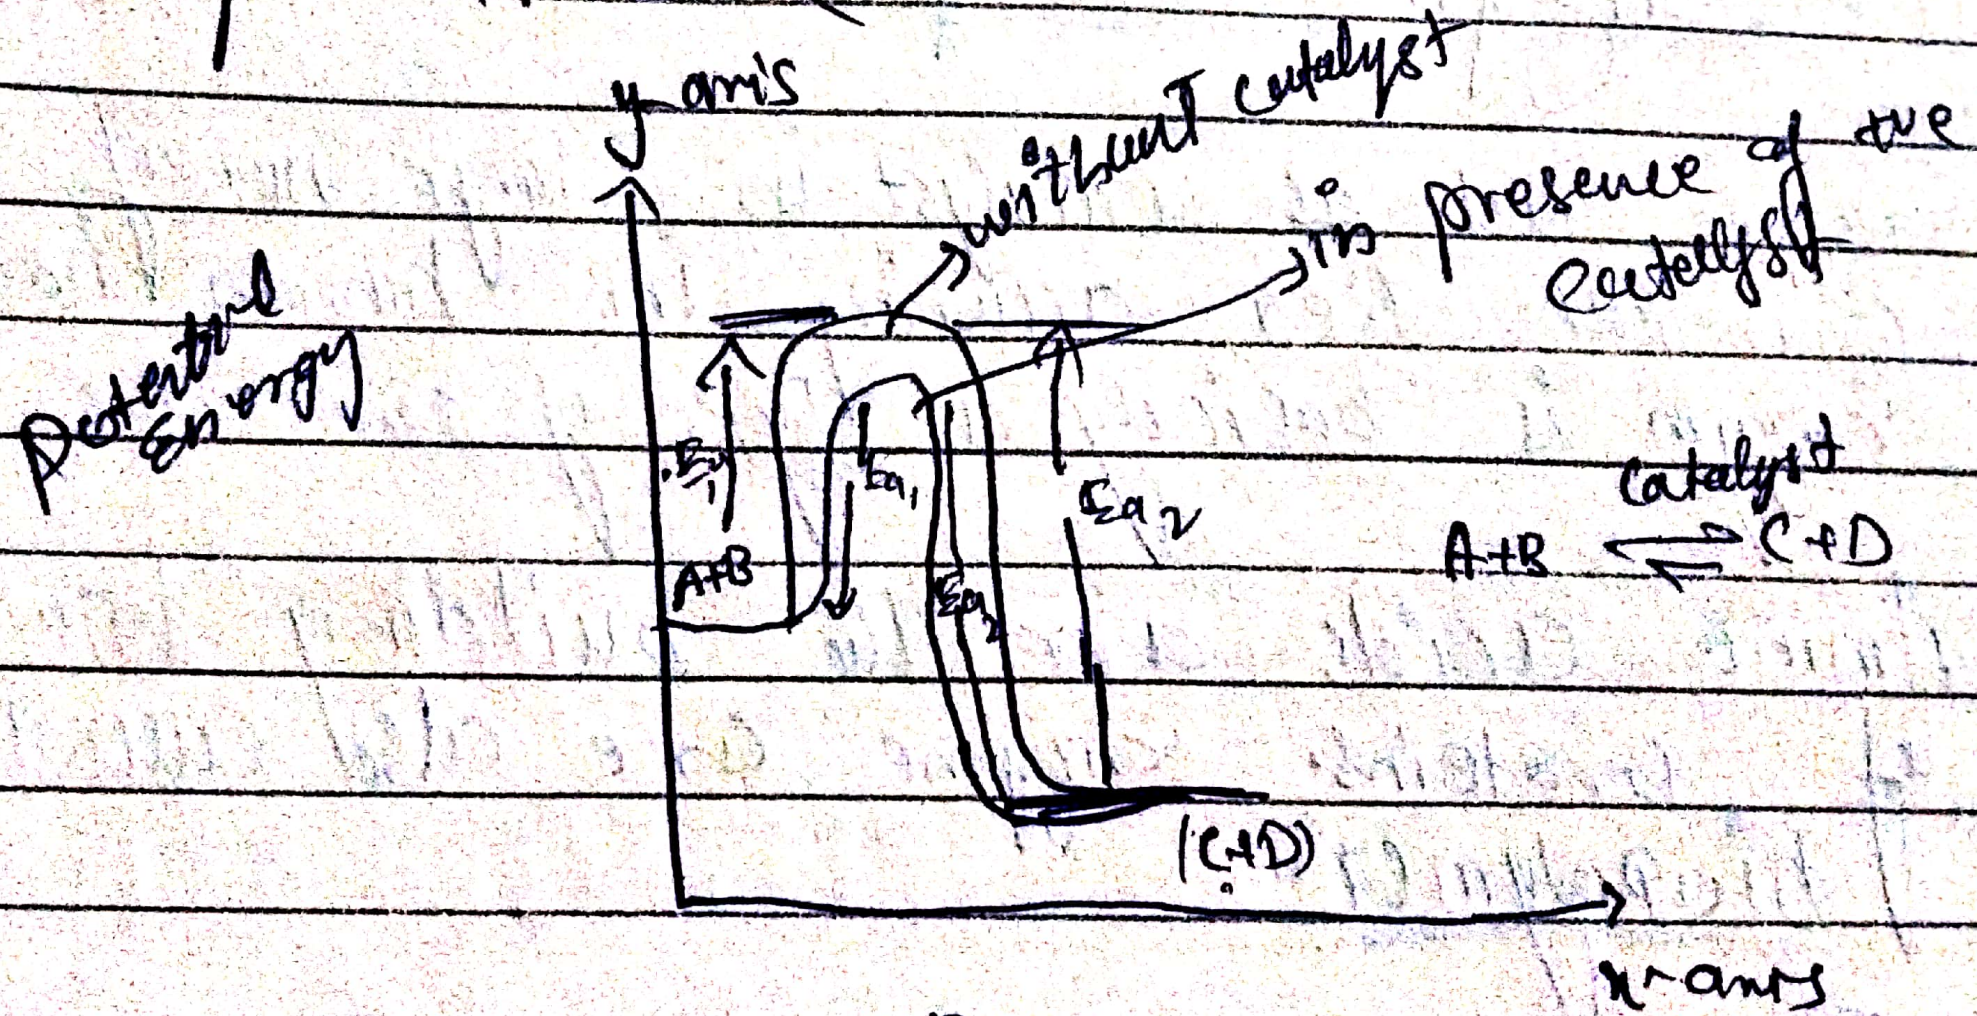 y-axis
without catalyst
in presence of +ve
catalyst
Potential
Energy
Ea1
Ea2
catalyst
A+B ⇌ C+D
A+B
Ea2
(C+D)
x-axis